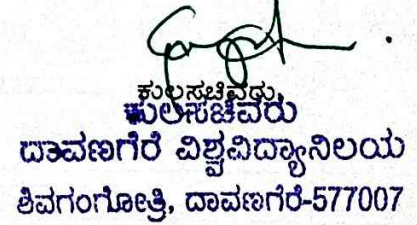 ಕುಲಸಚಿವರು
ಕುಲಸಚಿವರು
ದಾವಣಗೆರೆ ವಿಶ್ವವಿದ್ಯಾನಿಲಯ
ಶಿವಗಂಗೋತ್ರಿ, ದಾವಣಗೆರೆ-577007